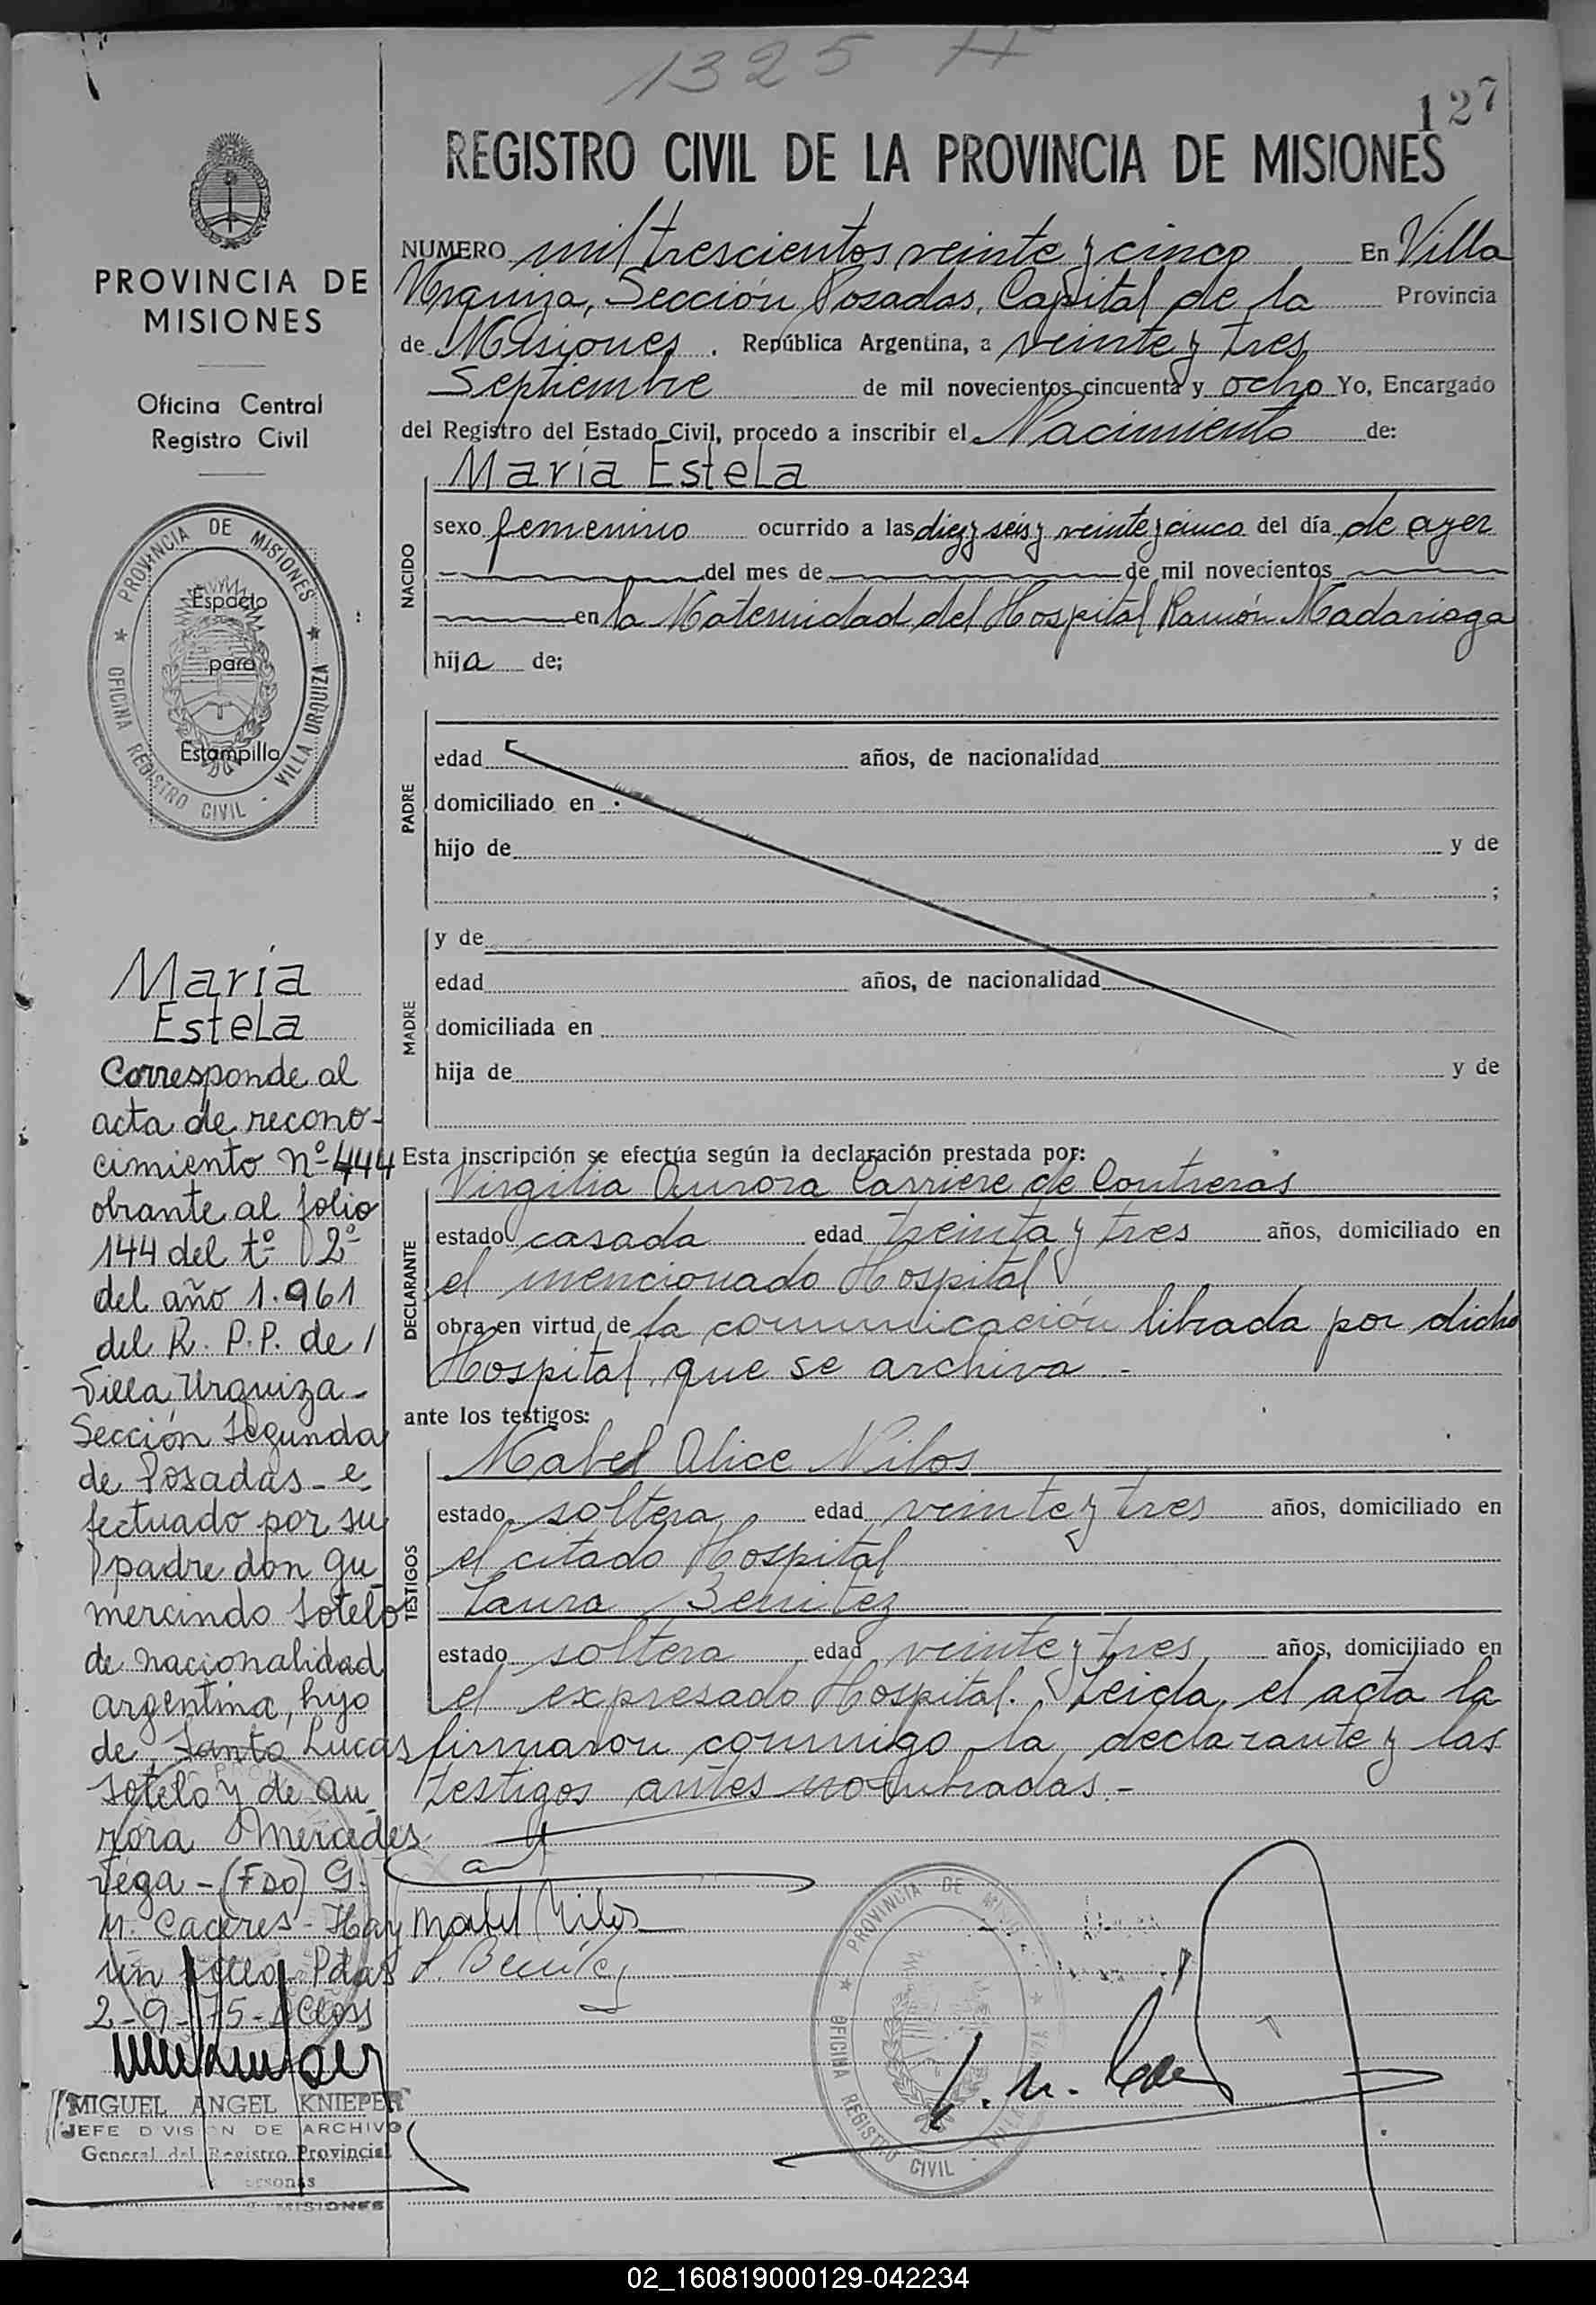 1325 H
127
REGISTRO CIVIL DE LA PROVINCIA DE MISIONES
PROVINCIA DE
MISIONES
Oficina Central
Registro Civil
PROVINCIA DE MISIONES
OFICINA REGISTRO CIVIL - VILLA URQUIZA
Espacio
para
Estampilla
María
Estela
Corresponde al
acta de recono-
cimiento nº 444
obrante al folio
144 del tº 2º
del año 1.961
del R. P.P. de /
Villa Urquiza -
Sección Segunda
de Posadas - e-
fectuado por su
padre don Gu-
mercindo Sotelo
de nacionalidad
argentina, hijo
de Santo Lucas
Sotelo y de Au-
rora Mercedes
Vega - (FDO) G.
N. Caceres - Hay
un sello Pdas
2-9-75-
MIGUEL ANGEL KNIEPER
JEFE DIVISION DE ARCHIVO
General del Registro Provincial
MISIONES
NUMERO mil trescientos veinte y cinco En Villa
Urquiza, Sección Posadas, Capital de la Provincia
de Misiones . República Argentina, a veinte y tres
Septiembre de mil novecientos cincuenta y ocho Yo, Encargado
del Registro del Estado Civil, procedo a inscribir el Nacimiento de:
María Estela
NACIDO
sexo femenino ocurrido a las diez y seis y veinte y cinco del día de ayer
del mes de de mil novecientos
en la Maternidad del Hospital Ramón Madariaga
hija de;
PADRE
edad años, de nacionalidad
domiciliado en
hijo de y de
;
MADRE
y de
edad años, de nacionalidad
domiciliada en
hija de y de
Esta inscripción se efectúa según la declaración prestada por:
DECLARANTE
Virgilia Aurora Carriere de Contreras
estado casada edad treinta y tres años, domiciliado en
el mencionado Hospital
obra en virtud de la comunicación librada por dicho
Hospital, que se archiva -
ante los testigos:
TESTIGOS
Mabel Alice Nilos
estado soltera edad veinte y tres años, domiciliado en
el citado Hospital
Laura Benitez
estado soltera edad veinte y tres años, domiciliado en
el expresado Hospital. Leida el acta la
firmaron conmigo la declarante y las
testigos antes nombradas.-
Mabel Nilos
L. Benitez
PROVINCIA DE MISIONES
OFICINA REGISTRO CIVIL
02_160819000129-042234